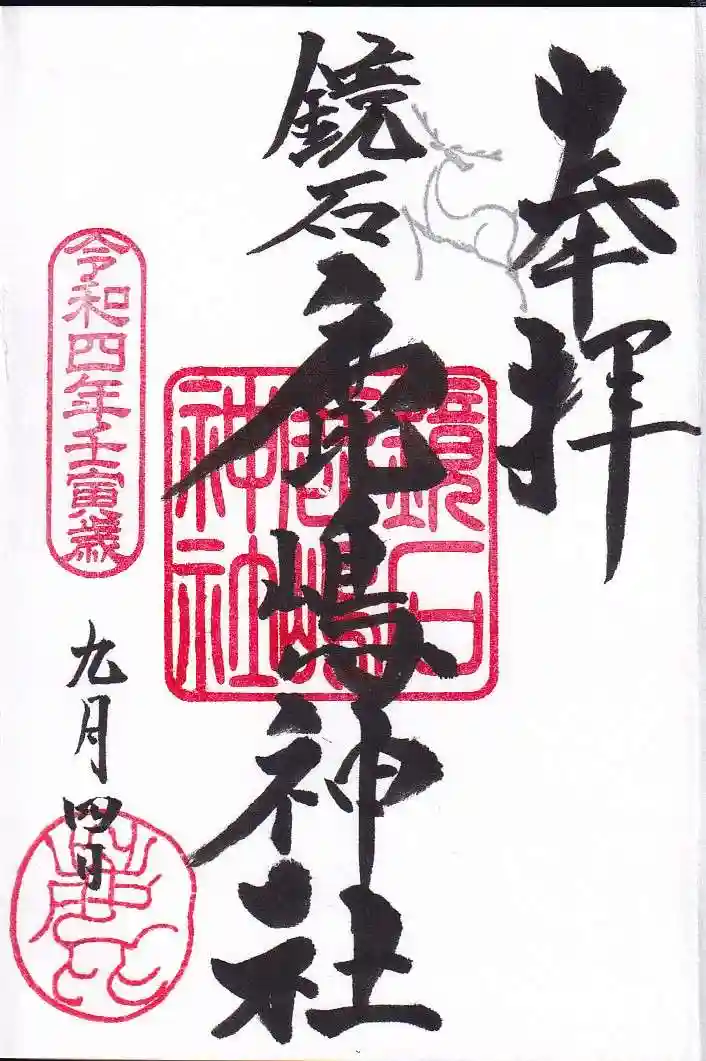 奉拝
鏡石鹿嶋神社
鏡石
鹿嶋
神社
令和四年壬寅歳
九月四日